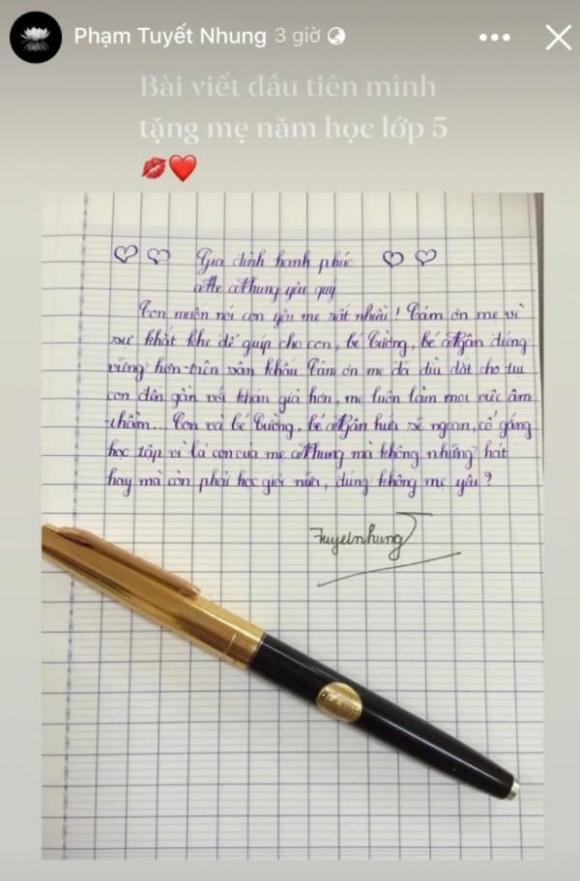 Phạm Tuyết Nhung 3 giờ
Bài viết đầu tiên mình
tặng mẹ năm học lớp 5
Gia đình hạnh phúc
Mẹ Nhung yêu quý
Con muốn nói con yêu mẹ rất nhiều! Cảm ơn mẹ vì
sự khắt khe để giúp cho con, bé Cường, bé Ngân đứng
vững hơn trên sân khấu. Cảm ơn mẹ đã dìu dắt cho tụi
con đến gần với khán giả hơn, mẹ luôn làm mọi việc âm
thầm... Con và bé Cường, bé Ngân hứa sẽ ngoan, cố gắng
học tập vì là con của mẹ Nhung mà không những hát
hay mà còn phải học giỏi nữa, đúng không mẹ yêu?
Tuyetnhung